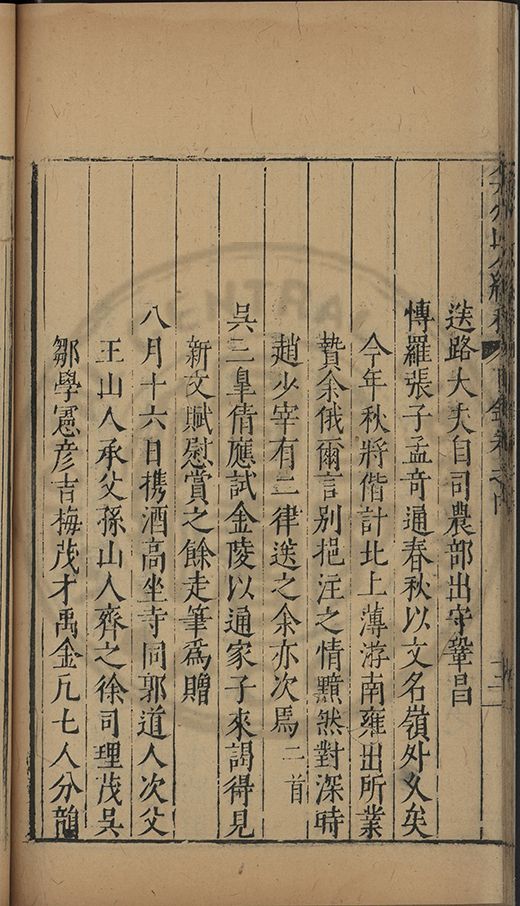 送路大夫自司農部出守鞏昌
博羅張子孟竒通春秋以文名嶺外乆矣
今年秋將偕計北上薄游南雍出所業
贄余俄爾言别挹汪之情黯然對深時
趙少宰有二律送之余亦次焉二首
吳二臯倩應試金陵以通家子來謁得見
新文賦慰賞之餘走筆爲贈
八月十六日㩗酒高坐寺同郭道人次父
王山人承父孫山人齊之徐司理茂吳
鄒學憲彦吉梅茂才禹金凡七人分韻